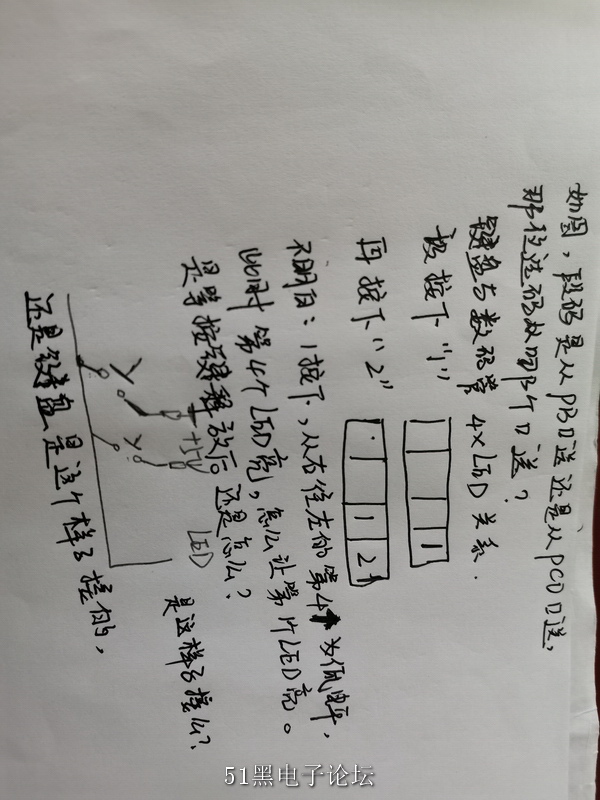 如图，段码是从PB口送还是从PC口送，
那位选码从哪个口送？
键盘与数码管 4×LED 关系.
设按下"1"
1
再按下"2"
1 2
不明白：1按下，从右往左的第4个为低电平，
此时第4个LED亮，怎么让第1个LED亮。
是等按键释放后还是怎么？
+5V
LED
是这样子接么？
还是键盘是这个样子接的，
51黑电子论坛